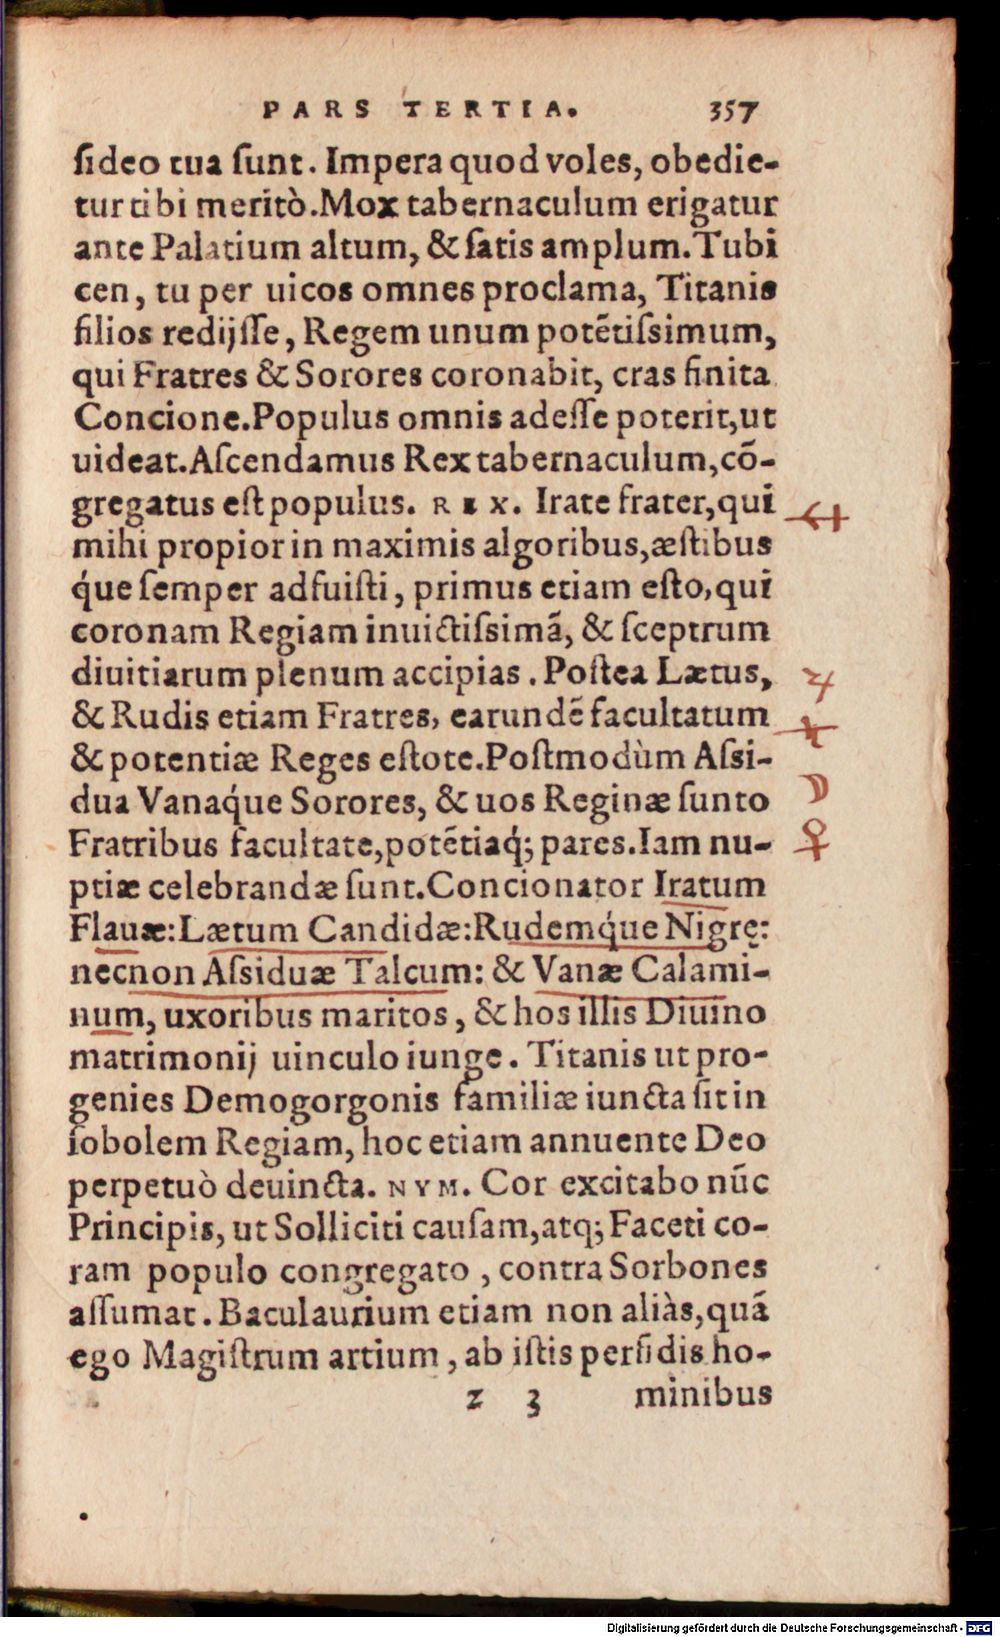 PARS TERTIA. 357
ſideo tua ſunt. Impera quod voles, obedie-
tur tibi meritò. Mox tabernaculum erigatur
ante Palatium altum, & ſatis amplum. Tubi
cen, tu per uicos omnes proclama, Titanis
filios redijſſe, Regem unum potẽtiſsimum,
qui Fratres & Sorores coronabit, cras finita
Concione. Populus omnis adeſſe poterit, ut
uideat. Aſcendamus Rex tabernaculum, cõ-
gregatus eſt populus. REX. Irate frater, qui
mihi propior in maximis algoribus, æſtibus
q́ue ſemper adfuiſti, primus etiam eſto, qui
coronam Regiam inuictiſsimã, & ſceptrum
diuitiarum plenum accipias. Poſtea Lætus, ♃
& Rudis etiam Fratres, earundẽ facultatum
& potentiæ Reges eſtote. Poſtmodùm Aſsi-
dua Vanaq́ue Sorores, & uos Reginæ ſunto ☽
Fratribus facultate, potẽtiaq́; pares. Iam nu- ♀
ptiæ celebrandæ ſunt. Concionator Iratum
Flauæ: Lætum Candidæ: Rudemq́ue Nigrę:
necnon Aſsiduæ Talcum: & Vanæ Calami-
num, uxoribus maritos, & hos illis Diuino
matrimonij uinculo iunge. Titanis ut pro-
genies Demogorgonis familiæ iuncta ſit in
ſobolem Regiam, hoc etiam annuente Deo
perpetuò deuincta. NYM. Cor excitabo nũc
Principis, ut Solliciti cauſam, atq; Faceti co-
ram populo congregato, contra Sorbones
aſſumat. Baculaurium etiam non aliàs, quã
ego Magiſtrum artium, ab iſtis perfidis ho-
z 3 minibus
Digitalisierung gefördert durch die Deutsche Forschungsgemeinschaft - DFG